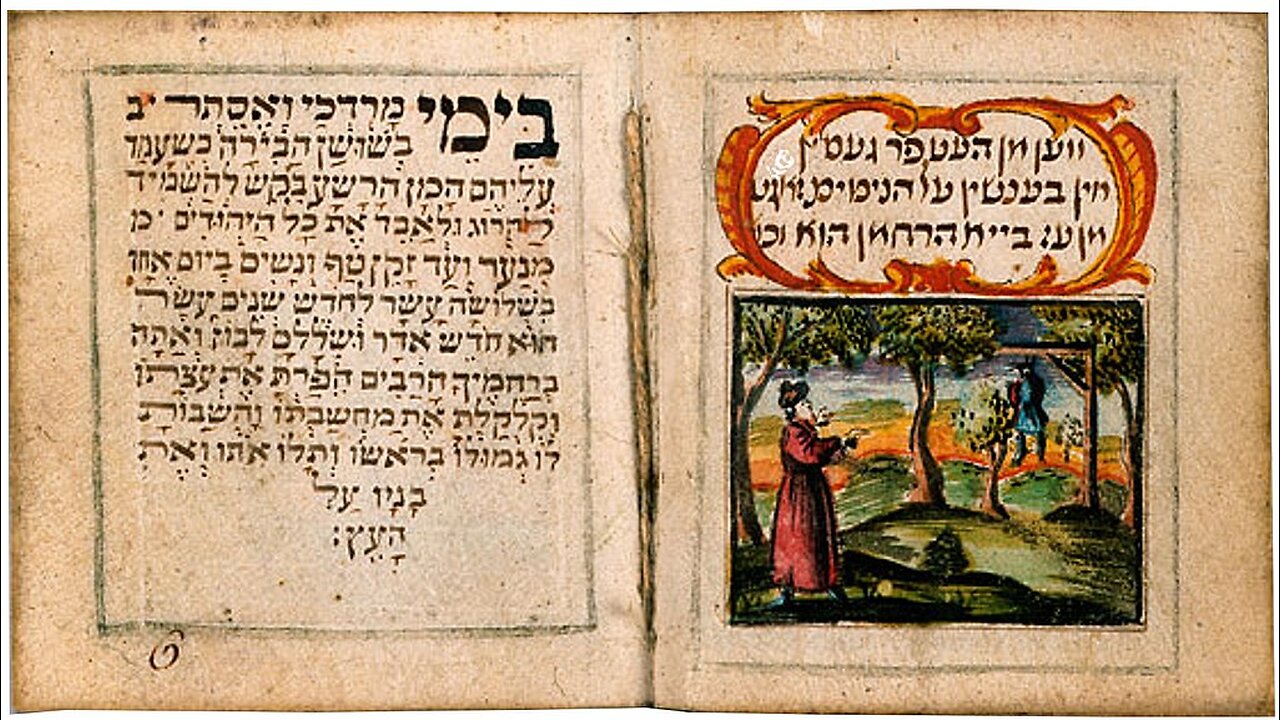 ווען מן העט פר געסין
אין בענטשין על הניסים
מן בייא הרחמן הוא וכו
בימי מרדכי ואסתר ב
בשושן הבירה כשעמד
עליהם המן הרשע בקש להשמיד
להרוג ולאבד את כל היהודים מ
מנער ועד זקן טף ונשים ביום אחד
בשלושה עשר לחדש שנים עשר
הוא חדש אדר ושללם לבוז ואתה
ברחמיך הרבים הפרת את עצתו
וקלקלת את מחשבתו והשבות
לו גמולו בראשו ותלו אתו ואת
בניו על
העץ:
6